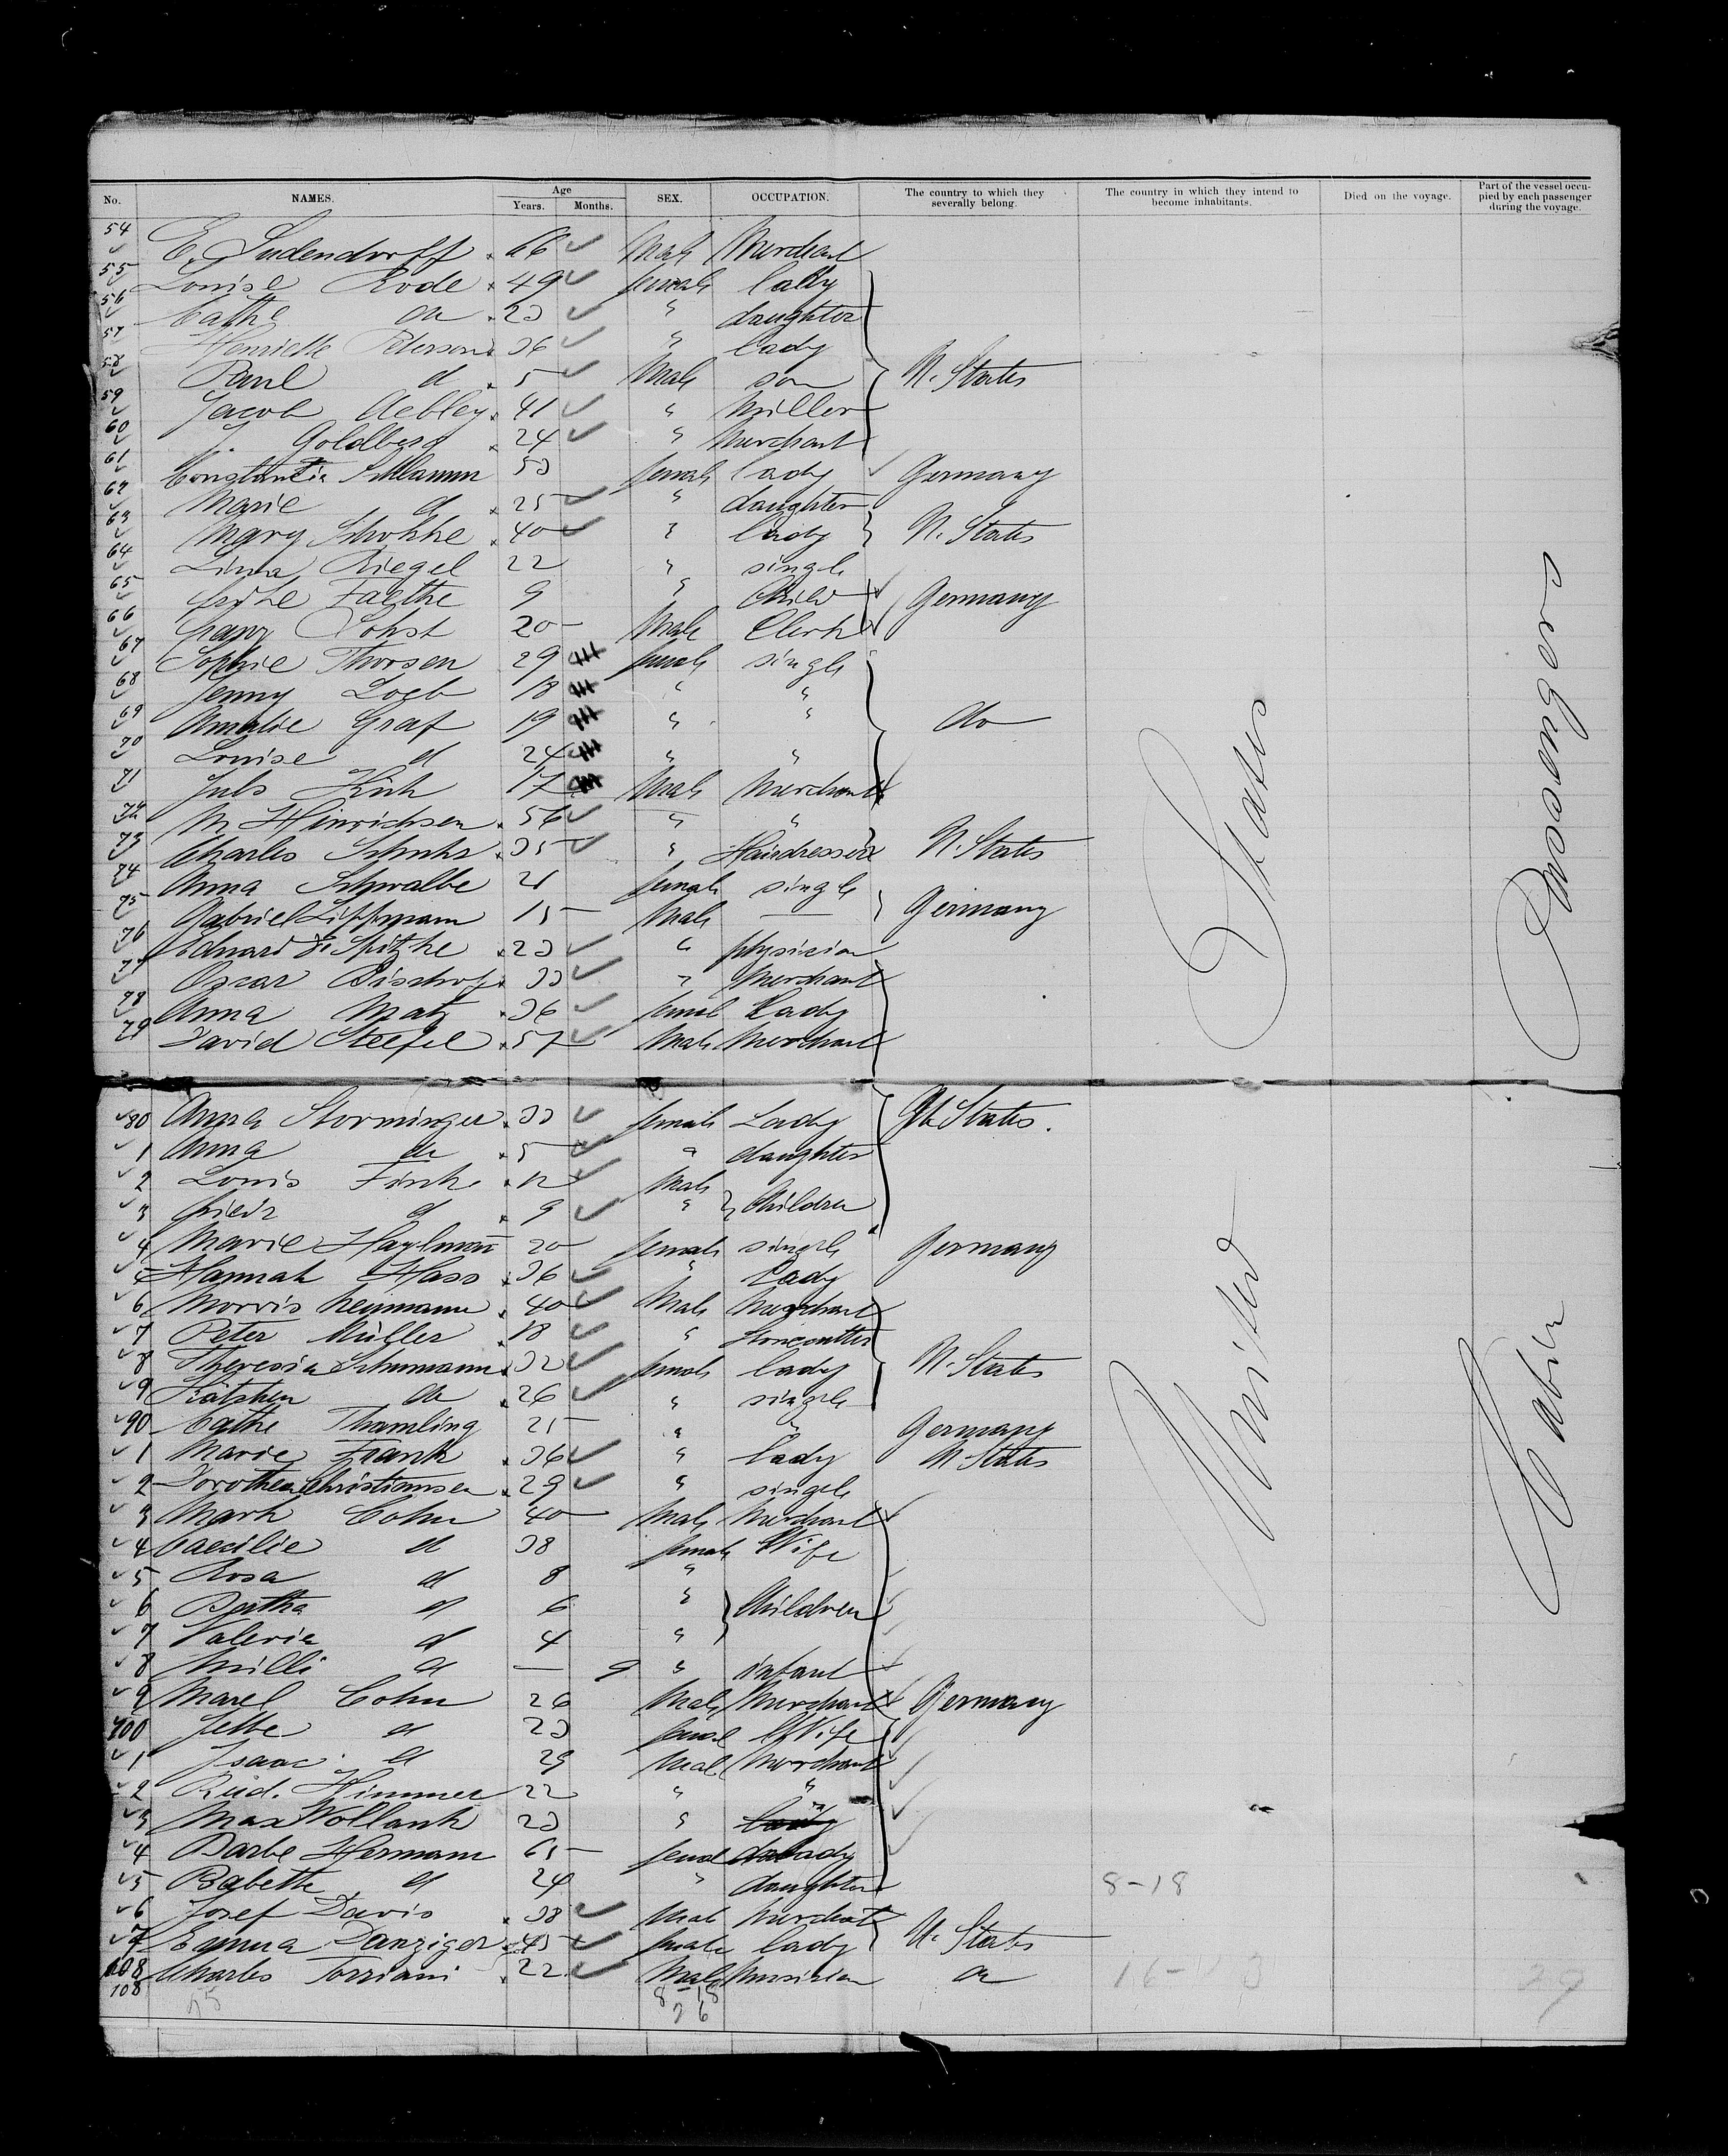 No. NAMES. Age Years. Months. SEX. OCCUPATION. The country to which they severally belong. The country in which they intend to become inhabitants. Died on the voyage. Part of the vessel occupied by each passenger during the voyage.
54 E. Ludendorff 66 Male Merchant
55 Louise Rode 49 female lady
56 Cathe do 23 " daughter
57 Henriette Petersen 36 " lady
58 Paul d 5 Male son U. States
59 Jacob Aebley 41 " Miller
60 J. Goldberg 24 " Merchant
61 Constantia 53 female lady Germany
62 Marie d 25 " daughter
63 Mary 40 " lady U. States
64 Lina Riegel 22 " single
65 9 " Child Germany
66 Franz Bohst 20 Male Clerk
67 Sophie Thorsen 29 female single
68 Jenny Loeb 18 " "
69 Amalie Graf 19 " " do
70 Louise d 24 " "
71 Juls 17 Male Merchant
72 M Hinrichsen 56 " "
73 Charles 35 " Hairdresser U. States
74 Anna Schwalbe 21 female single
75 Gabriel Lippmann 15 Male — Germany
76 Eduard Dr Spitzke 23 " physician
77 Oscar Bischof 33 " Merchant
78 Anna Matz 36 femal Lady
79 David Steefel 57 Male Merchant
80 Anna Storminger 33 female Lady U. States.
1 Anna do 5 " daughter
2 Louis Finke 12 Male
3 Friedr d 9 " Children
4 Marie Haylmann 20 female single Germany
5 Hannah Hass 36 " Lady
6 Morris Neumann 40 Male Merchant
7 Peter Müller 18 " Stonecutter
8 Theresia Schumann 32 female lady U. States
9 Kätchen do 26 " single
90 Cathe Thamling 25 " " Germany
1 Marie Frank 36 " lady U States
2 Dorothea Christiansen 29 " single
3 Mark Cohn 40 Male Merchant
4 Caecilie d 38 female Wife
5 Rosa d 8 "
6 Bertha d 6 " Children
7 Valerie d 4 "
8 Milli d — 9 " infant
9 Marel Cohn 26 Male Merchant Germany
100 Jette d 23 femal Wife
1 Isaac d 29 Male Merchant
2 Rud. Himmer 22 " "
3 Max Wollank 23 " "
4 Barbe Hermann 65 femal Lady
5 Babette d 24 " daughter
8-18
6 Josef Davis 38 Male Merchant
7 Emma Danziger 45 female lady U. States
108 Charles Torriani 22 Male Musician do
108
United States
Cabin Passengers